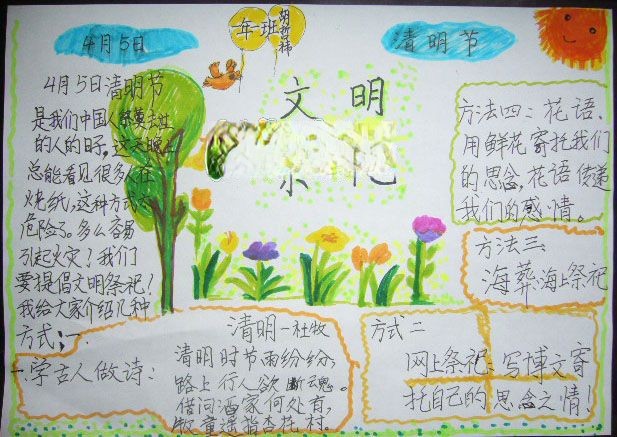 4月5日
一年一班
清明节
文明
祭祀
4月5日清明节
是我们中国人祭奠去世
的人的日子,这天晚上
总能看见很多人在
烧纸,这种方式太
危险了。多么容易
引起火灾!我们
要提倡文明祭祀!
我给大家介绍几种
方式:
一学古人做诗:
清明-杜牧
清明时节雨纷纷,
路上行人欲断魂。
借问酒家何处有,
牧童遥指杏花村。
方式二
网上祭祀:写博文寄
托自己的思念之情!
方法三:
海葬海上祭祀
方法四:花语.
用鲜花寄托我们
的思念,花语传递
我们的感情。